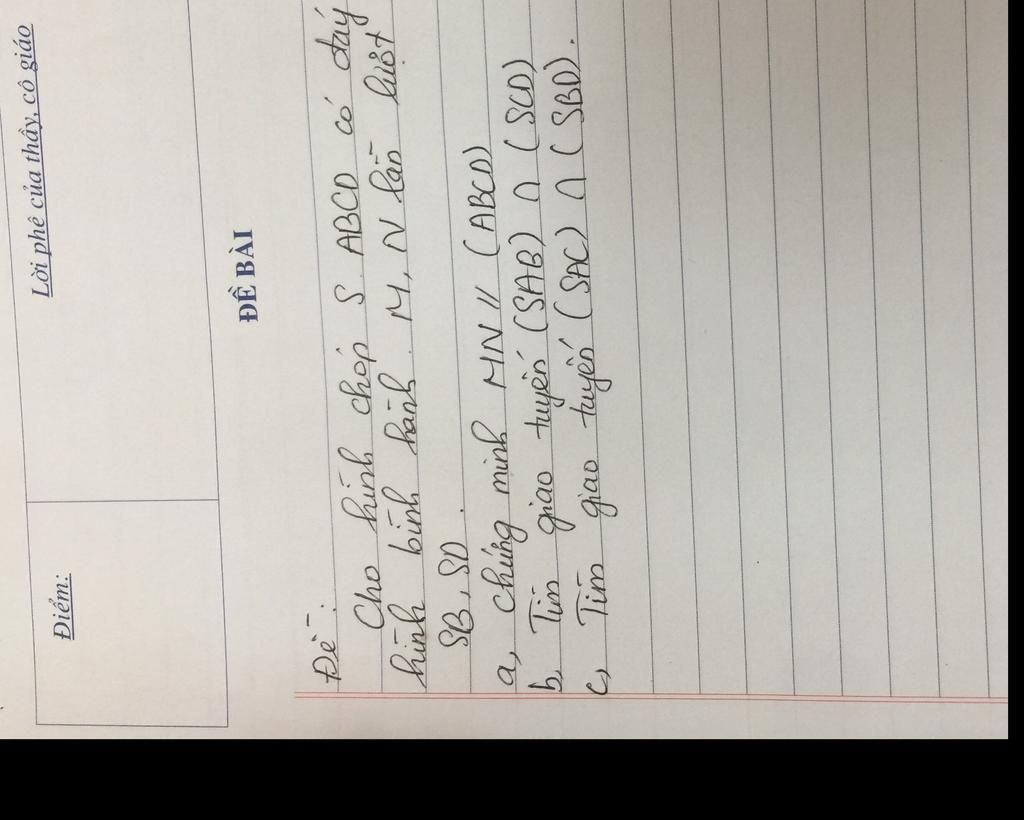 Điểm:
Lời phê của thầy, cô giáo
ĐỀ BÀI
Đề:
Cho hình chóp S.ABCD có đáy
hình bình hành. M, N lần lượt
SB, SD.
a, Chứng minh MN // (ABCD)
b, Tìm giao tuyến (SAB) ∩ (SCD)
c, Tìm giao tuyến (SAC) ∩ (SBD).